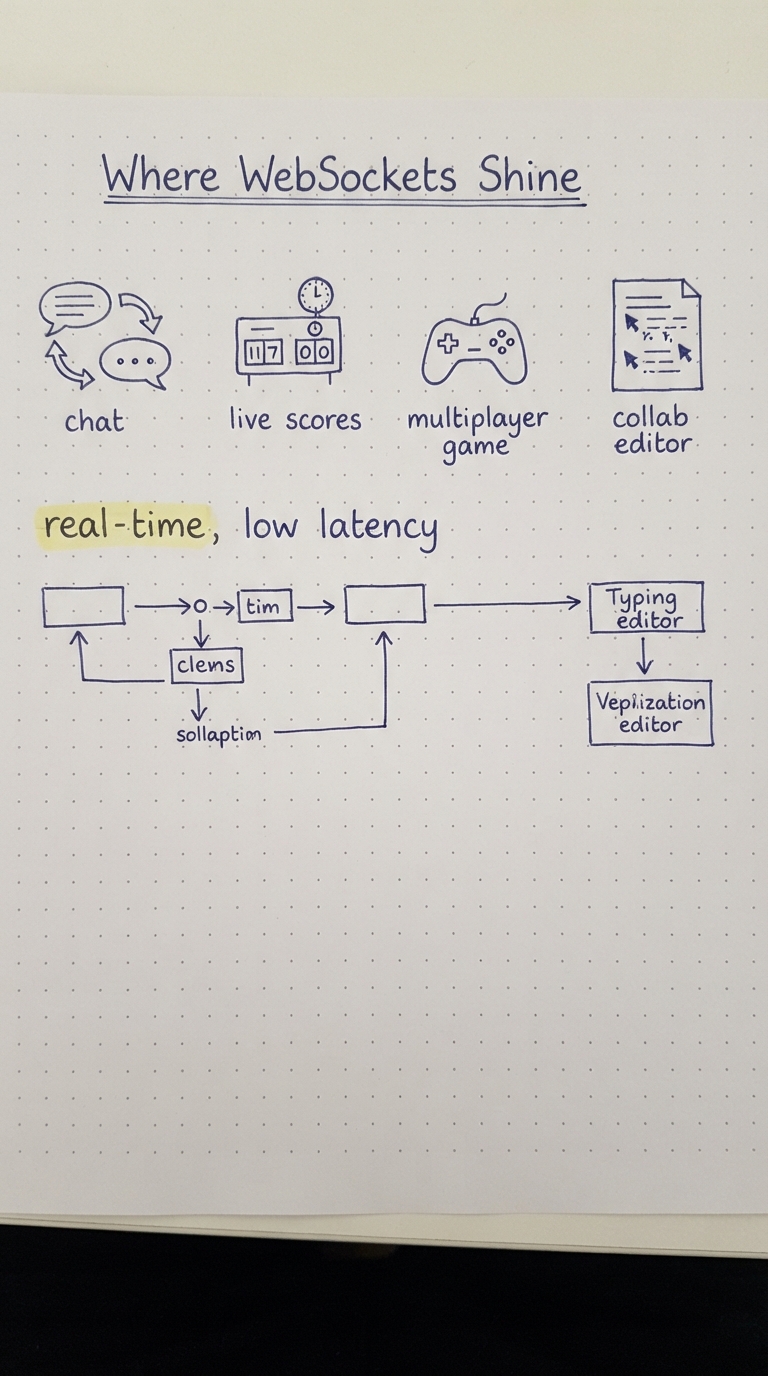 Where WebSockets Shine
117 00
chat
live scores
multiplayer
game
collab
editor
real-time, low latency
tim
Typing
editor
clems
sollaption
editor